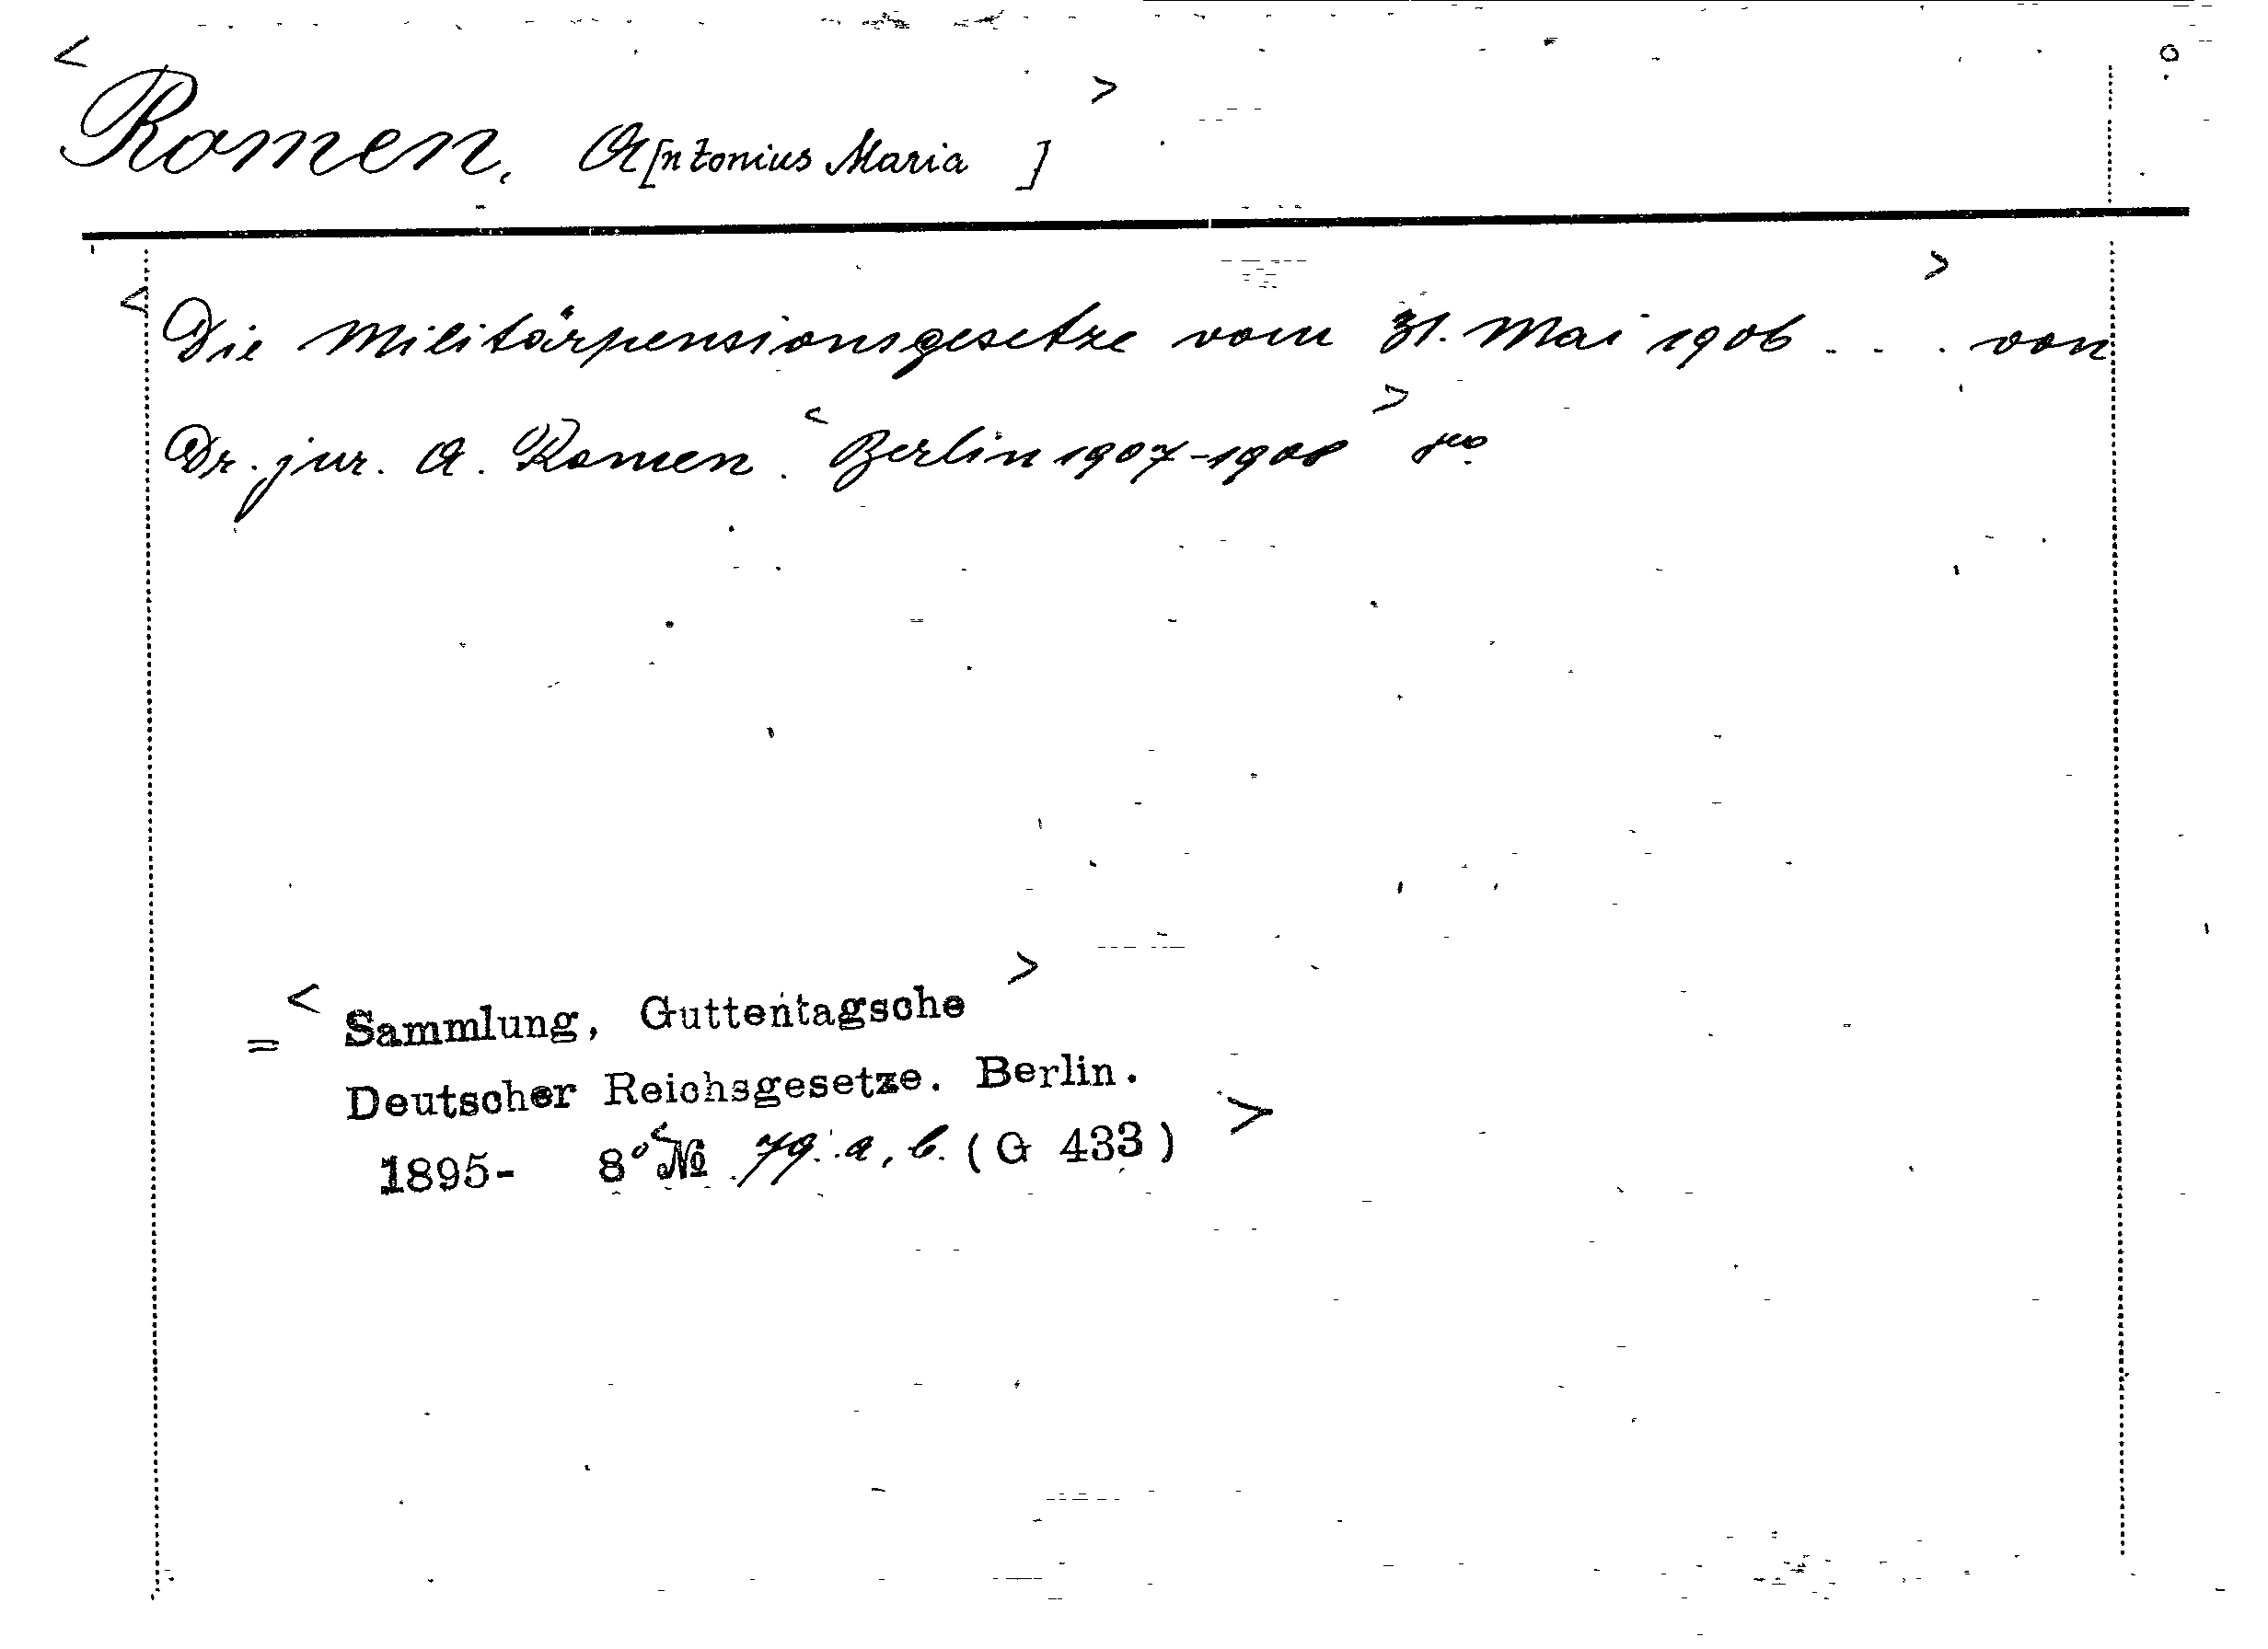 < Romen, A[ntonius Maria ] >
< Die Militärpensionsgesetze vom 31. Mai 1906 . . . > von
Dr. jur. A. Romen. < Berlin 1907-1908 >
= < Sammlung, Guttentagsche >
Deutscher Reichsgesetze. Berlin.
1895- 8° < № 79 a, b. (G 433) >